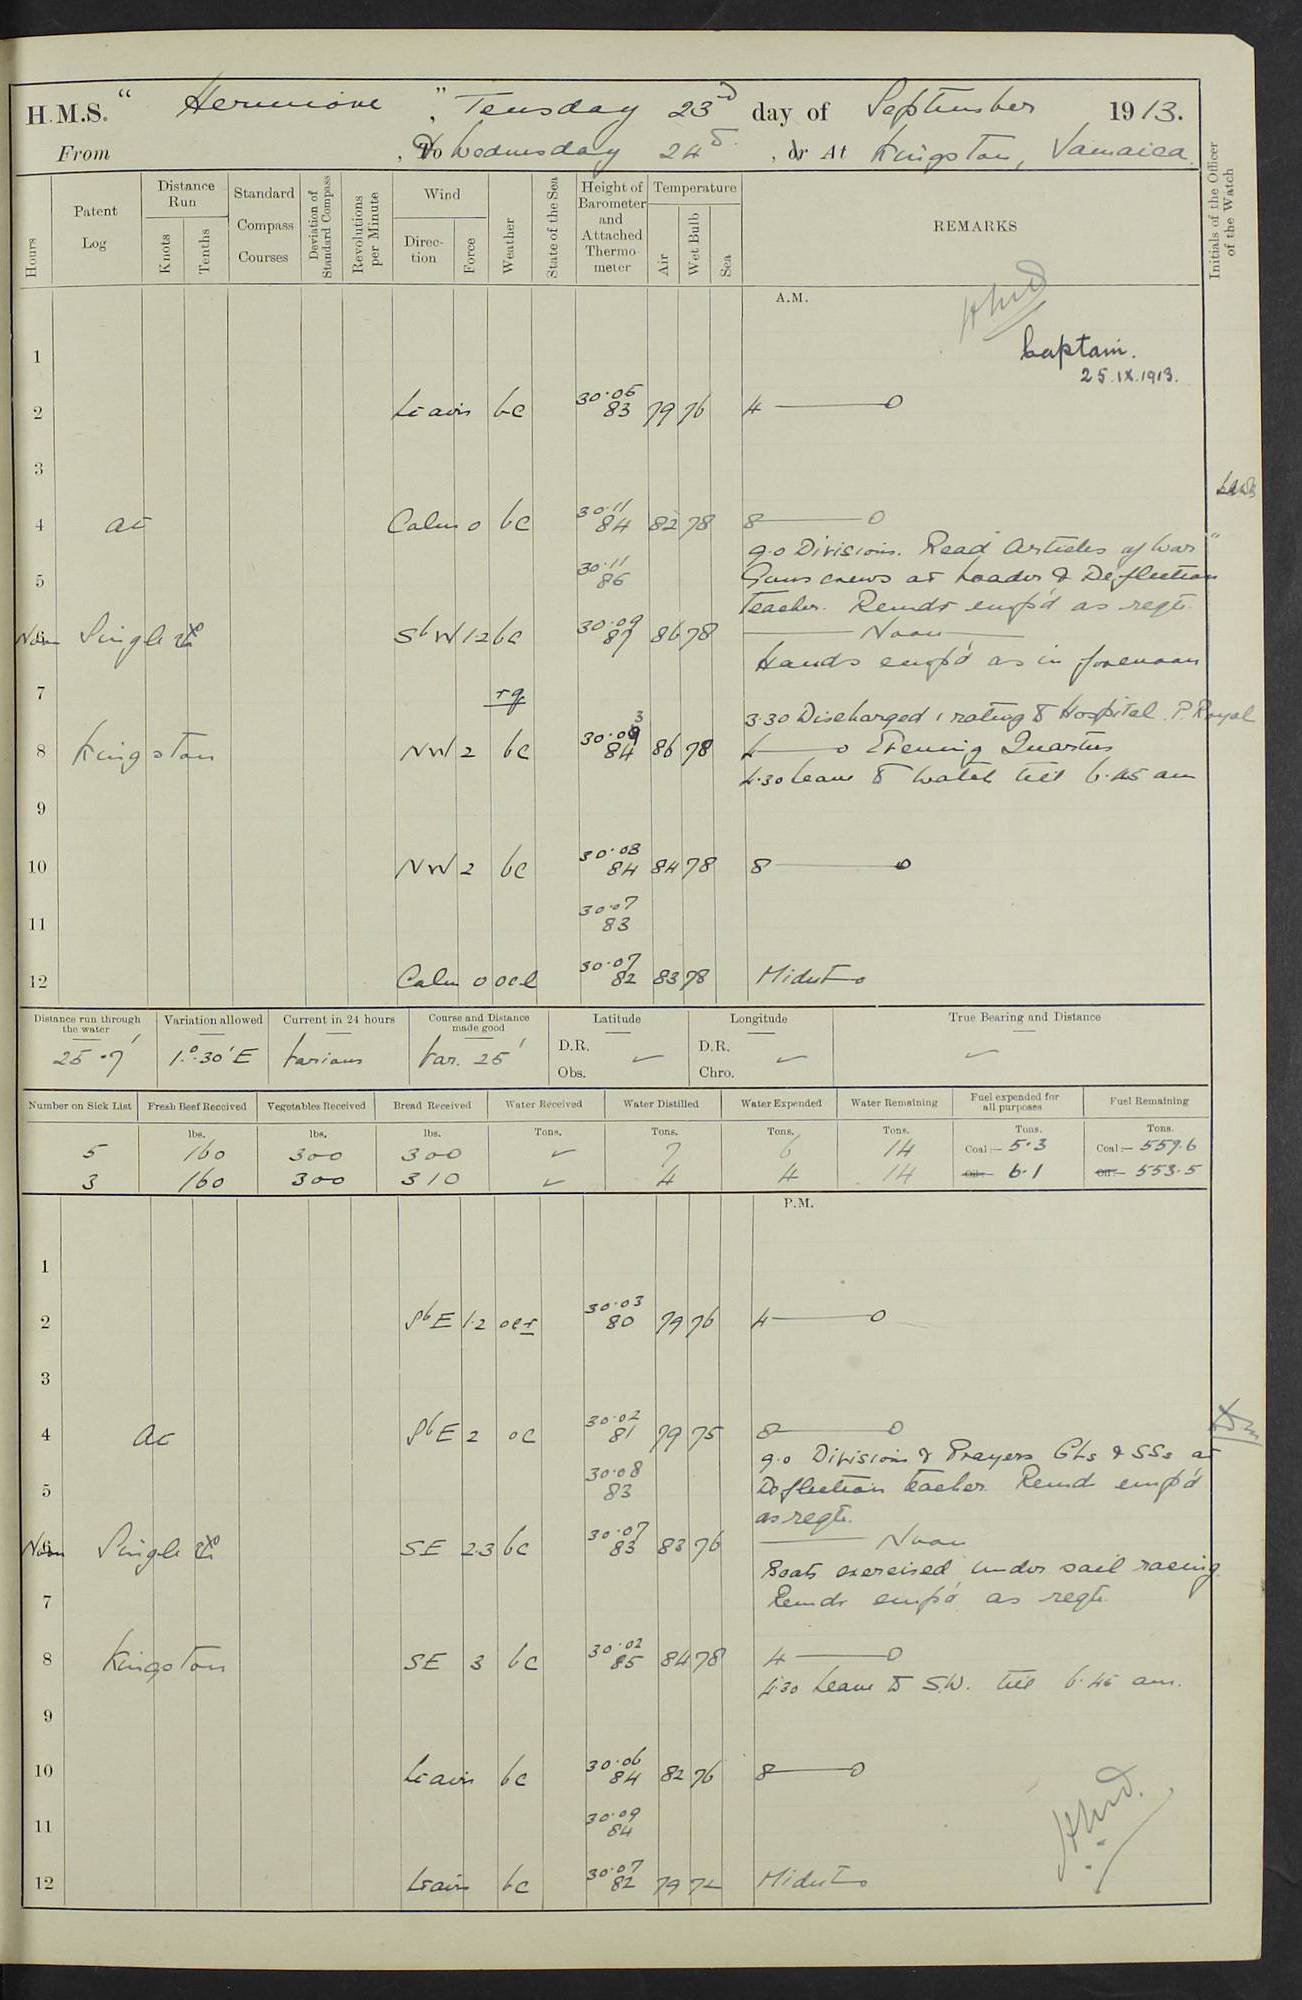 H.M.S. "Hermione", Teusday 23rd day of September 1913.
From , To Wednesday 24th , or At Kingston, Jamaica.
Hours
Patent Log
Distance Run
Knots
Tenths
Standard Compass Courses
Deviation of Standard Compass
Revolutions per Minute
Wind
Direction
Force
Weather
State of the Sea
Height of Barometer and Attached Thermometer
Temperature
Air
Wet Bulb
Sea
REMARKS
Initials of the Officer of the Watch
A.M.
1
Captain.
25.IX.1913.
2 Lt airs bc 30.05 83 79 76 4
3
4 at Calm 0 bc 30.11 84 82 78 8
9.0 Divisions. Read Articles of War"
5 30.11 86 Guns crews at Loader & Deflection
Teacher. Remdr emp'd as reqte.
Noon Single Sbw 1-2 bc 30.09 87 86 78 Noon
Hands emp'd as in forenoon
7 rq
3.30 Discharged 1 rating to Hospital P. Royal
8 Kingston NW 2 bc 30.03 84 86 78 4 Evening Quarters
4.30 Leave to watch till 6.45 am
9
10 NW 2 bc 30.03 84 84 78 8
11 30.07 83
12 Calm 0 ocl 30.07 82 83 78 Midnt
Distance run through the water
Variation allowed
Current in 24 hours
Course and Distance made good
Latitude
Longitude
True Bearing and Distance
D.R. ✓ D.R. ✓ ✓
25.7' 1.°30'E Various Var. 25'
Obs. Chro.
Number on Sick List
Fresh Beef Received
Vegetables Received
Bread Received
Water Received
Water Distilled
Water Expended
Water Remaining
Fuel expended for all purposes
Fuel Remaining
lbs. lbs. lbs. Tons. Tons. Tons. Tons. Tons. Tons.
5 160 300 300 ✓ 7 6 14 Coal— 5.3 Coal— 559.6
3 160 300 310 ✓ 4 4 14 Oil— 6.1 Oil— 553.5
P.M.
1
2 SbE 1.2 ocr 30.03 80 79 76 4
3
4 at SbE 2 oc 30.02 81 79 75 8
9.0 Divisions & Prayers GLs & SSs at
5 30.08 83 Deflection teacher. Remdr emp'd
as reqte.
Noon Single SE 2.3 bc 30.07 83 83 76 Noon
Boats exercised under sail racing.
7 Remdr emp'd as reqte
8 Kingston SE 3 bc 30.02 85 84 78 4
4.30 Leave to S.W. till 6.45 am.
9
10 Lt airs bc 30.06 84 82 76 8
11 30.09 84
12 Lt airs bc 30.07 82 79 74 Midnt